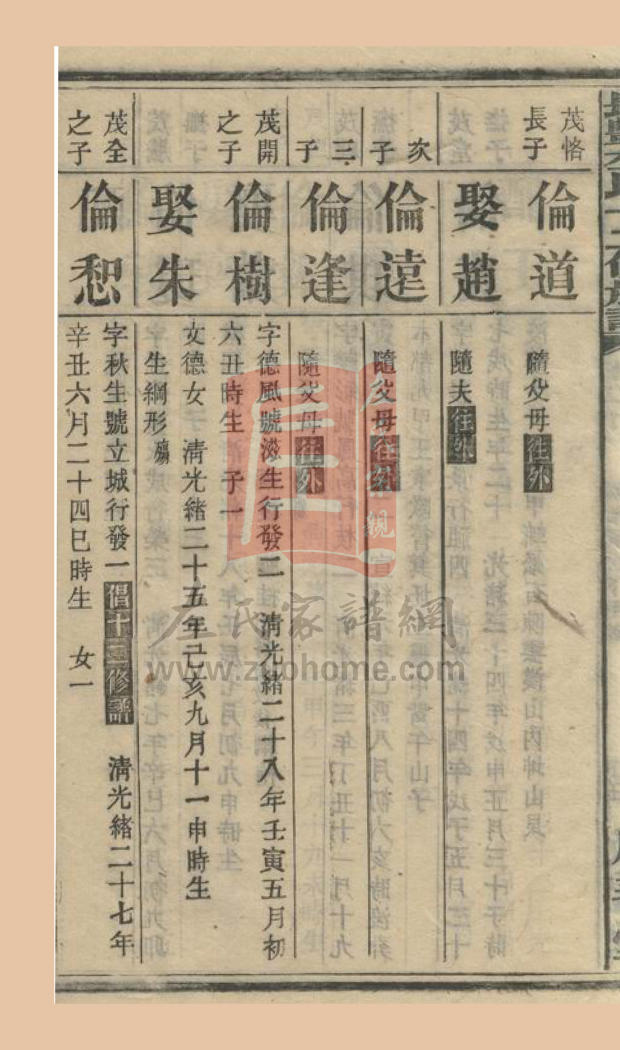 茂恪
長子
倫道
隨父母往外
娶趙
隨夫往外
次
子
倫遠
隨父母往外
三
子
倫逢
隨父母往外
茂開
之子
倫樹
字德風號滋生行發二 清光緒二十八年壬寅五月初
六丑時生 子一
娶朱
文德女 清光緒二十五年己亥九月十一申時生
生綱形殤
茂全
之子
倫恕
字秋生號立城行發一倡十三修譜 清光緒二十七年
辛丑六月二十四巳時生 女一
左氏家譜網
www.zuohome.com